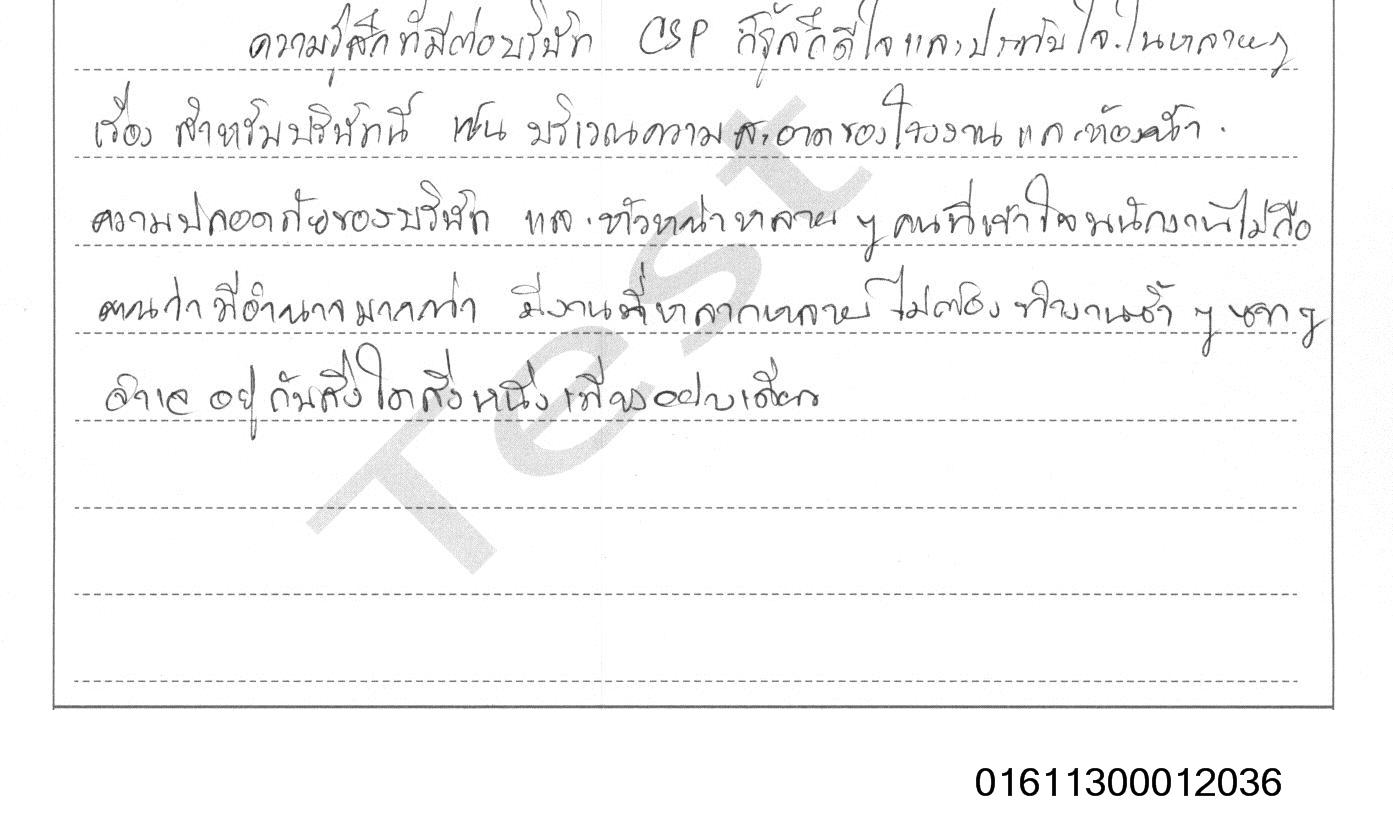 ความรู้สึกที่มีต่อบริษัท CSP ก็รู้สึกดีใจและประทับใจในหลายๆ
เรื่อง สำหรับบริษัทนี้ เช่น บริเวณความสะอาดของโรงงาน และห้องน้ำ.
ความปลอดภัยของบริษัท และหัวหน้าหลาย ๆ คนที่เข้าใจพนักงานไม่ถือ
ตนว่ามีอำนาจมากกว่า มีงานที่หลากหลาย ไม่ต้องทำงานซ้ำ ๆ
จำเจ อยู่กับสิ่งใดสิ่งหนึ่งเพียงอย่างเดียว
Test
01611300012036